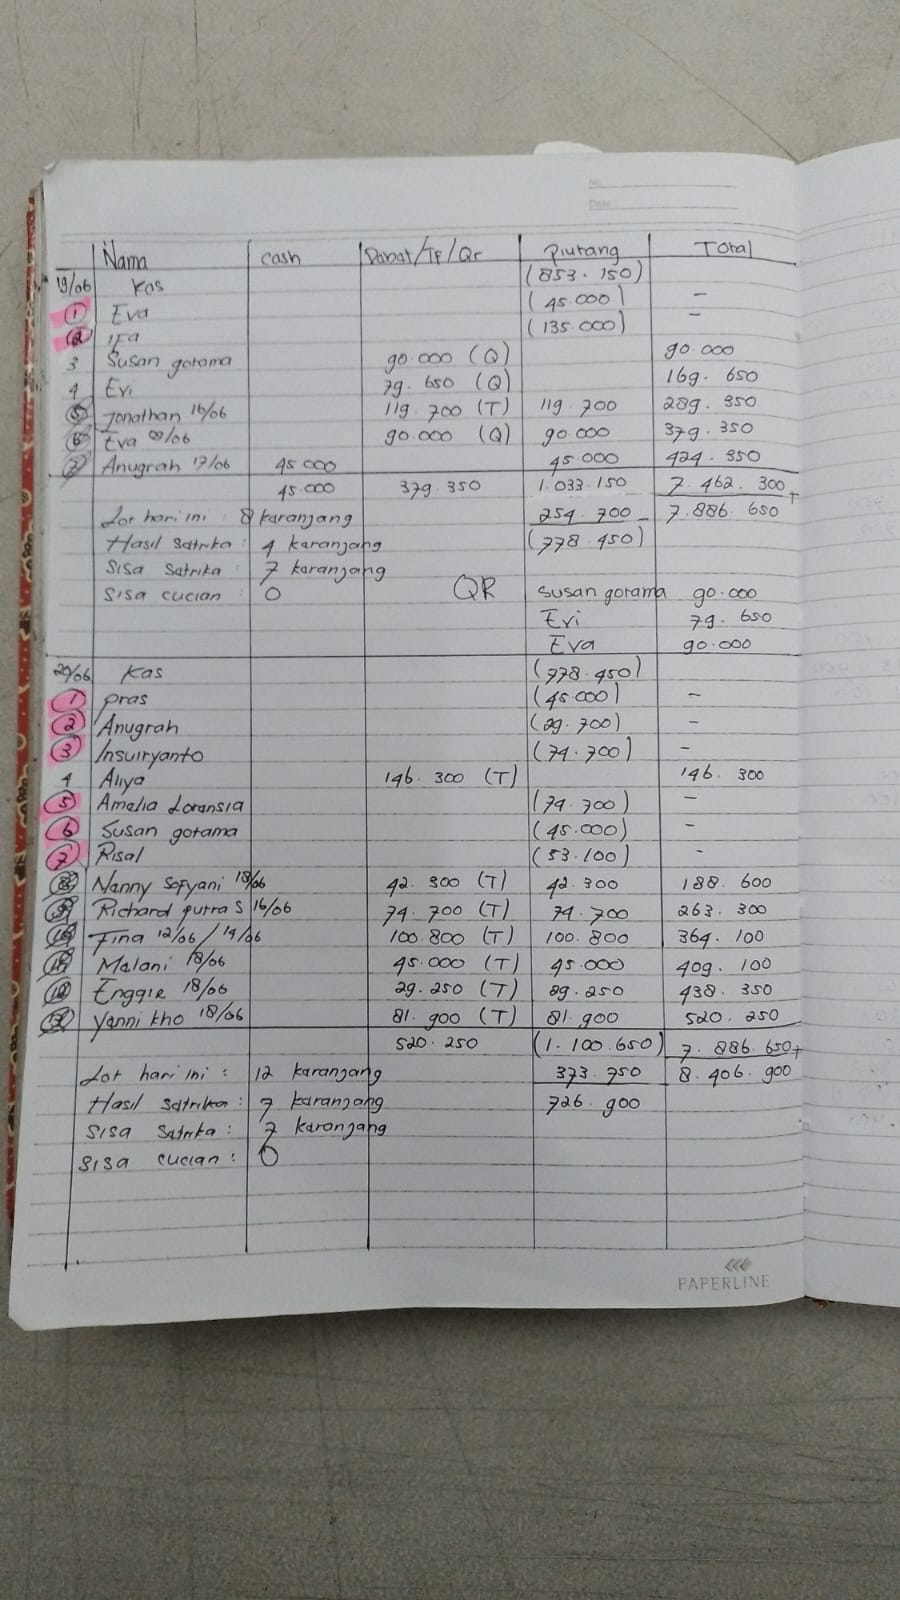 No.
Date:
Nama cash Danat/TF/Qr Piutang Total
19/06 Kas (853.150)
1 Eva (45.000) -
2 IFa (135.000) -
3 Susan gotama 90.000 (Q) 90.000
4 Evi 79.650 (Q) 169.650
5 Jonathan 16/06 119.700 (T) 119.700 289.350
6 Eva 08/06 90.000 (Q) 90.000 379.350
7 Anugrah 17/06 45.000 45.000 424.350
45.000 379.350 1.033.150 7.462.300 +
Lot hari ini : 8 karanjang 254.700 - 7.886.650
Hasil Satrika : 4 karanjang (778.450)
Sisa Satrika : 7 karanjang
Sisa cucian : 0 QR Susan gotama 90.000
Evi 79.650
Eva 90.000
20/06 Kas (778.450)
1 pras (45.000) -
2 Anugrah (29.700) -
3 Insuiryanto (74.700) -
4 Aliya 146.300 (T) 146.300
5 Amalia Loransia (74.700) -
6 Susan gotama (45.000) -
7 Risal (53.100) -
8 Nanny Sofyani 18/06 42.300 (T) 42.300 188.600
9 Richard putra S 16/06 74.700 (T) 74.700 263.300
10 Fina 12/06 / 14/06 100.800 (T) 100.800 364.100
11 Malani 18/06 45.000 (T) 45.000 409.100
12 Enggie 18/06 29.250 (T) 29.250 438.350
13 Yanni kho 18/06 81.900 (T) 81.900 520.250
520.250 (1.100.650) 7.886.650 +
Lot hari ini : 12 karanjang 373.750 8.406.900
Hasil Satrika : 7 karanjang 726.900
Sisa Satrika : 7 karanjang
Sisa cucian : 0
PAPERLINE